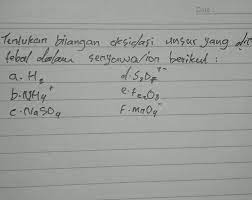 Date:
Tentukan bilangan oksidasi unsur yang di
tebal dalam senyawa/ion berikut :
a. H₂ d. S₂O₇²⁻
b. NH₄⁺ e. Fe₂O₃
c. NaSO₄ F. MnO₄⁻